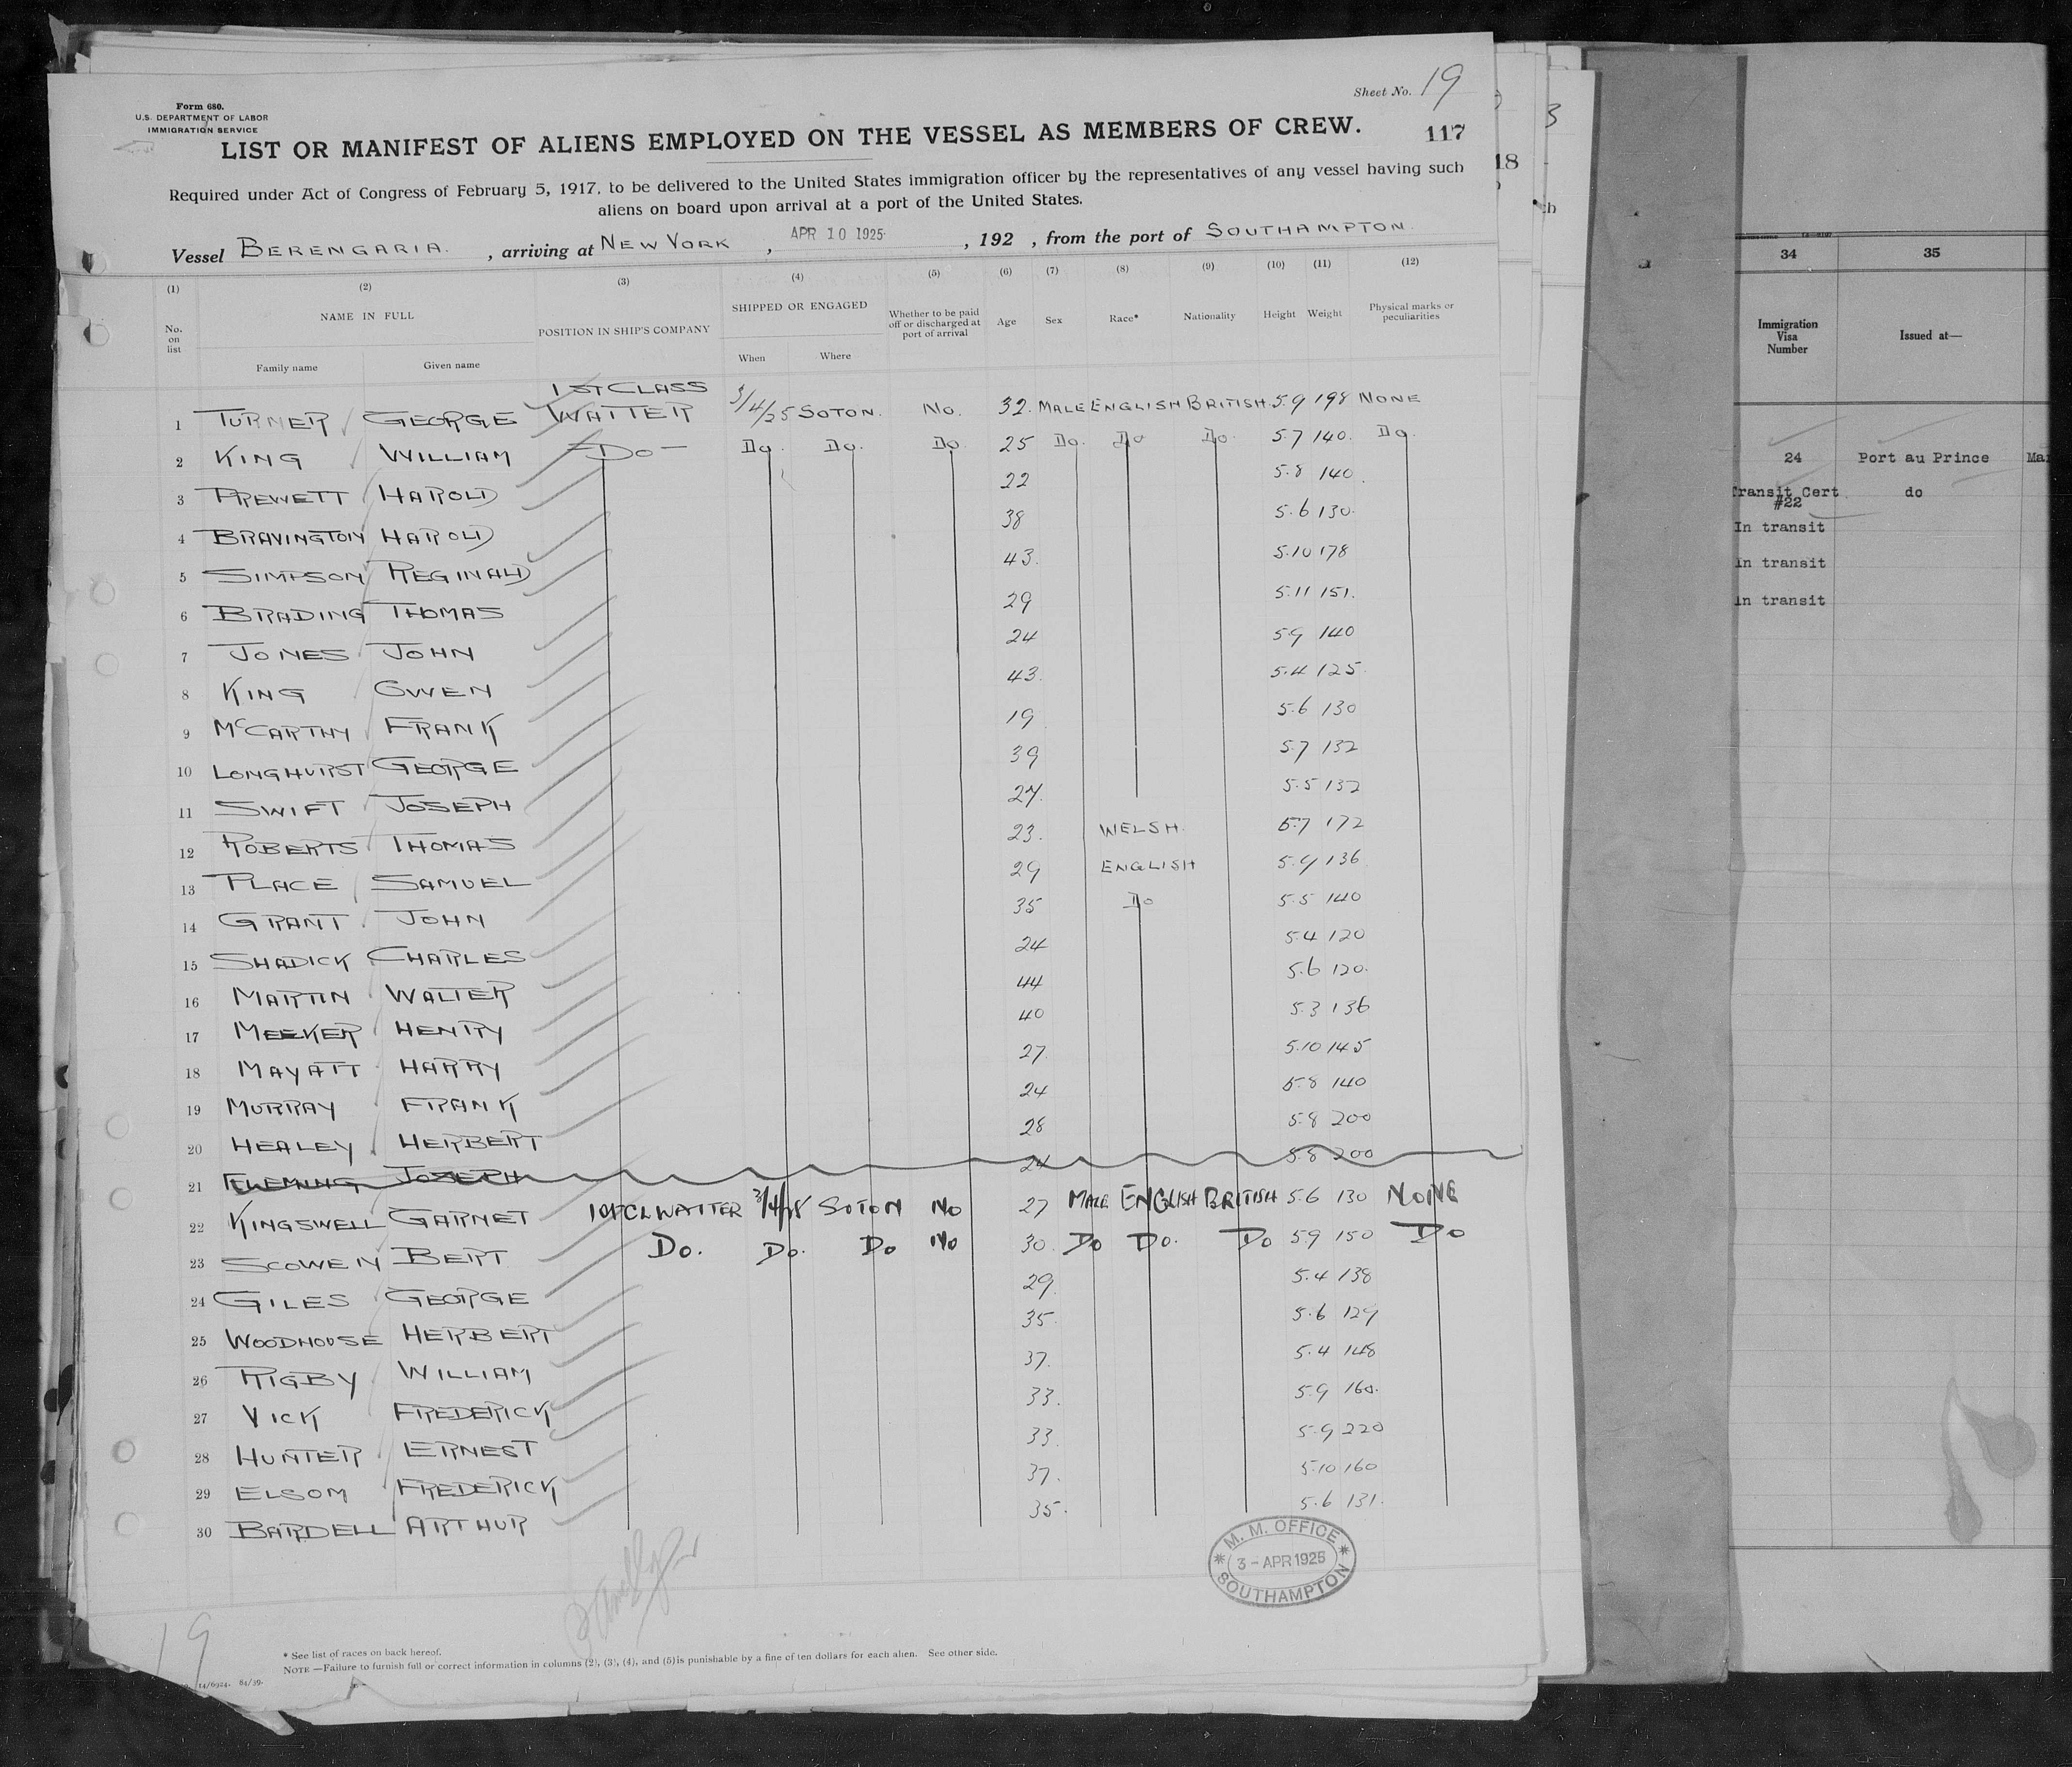 Sheet No. 19
Form 680.
U.S. DEPARTMENT OF LABOR
IMMIGRATION SERVICE
LIST OR MANIFEST OF ALIENS EMPLOYED ON THE VESSEL AS MEMBERS OF CREW.
117
Required under Act of Congress of February 5, 1917, to be delivered to the United States immigration officer by the representatives of any vessel having such
aliens on board upon arrival at a port of the United States.
Vessel BERENGARIA. , arriving at NEW YORK , APR 10 1925 , 192 , from the port of SOUTHAMPTON.
(1) (2) (3) (4) (5) (6) (7) (8) (9) (10) (11) (12)
No. on list NAME IN FULL POSITION IN SHIP'S COMPANY SHIPPED OR ENGAGED Whether to be paid off or discharged at port of arrival Age Sex Race* Nationality Height Weight Physical marks or peculiarities
Family name Given name When Where
1ST CLASS
1 TURNER GEORGE WAITER 3/4/25 SOTON. No. 32. MALE ENGLISH BRITISH. 5.9 198 NONE
2 KING WILLIAM —Do— Do. Do. Do. 25 Do. Do Do. 5.7 140. Do.
3 PREWETT HAROLD 22 5.8 140.
4 BRAVINGTON HAROLD 38 5.6 130.
5 SIMPSON REGINALD 43. 5.10 178
6 BRADING THOMAS 29 5.11 151.
7 JONES JOHN 24 5.9 140
8 KING OWEN 43. 5.4 125.
9 McCARTHY FRANK 19 5.6 130
10 LONGHURST GEORGE 39 5.7 132
11 SWIFT JOSEPH 27. 5.5 132
12 ROBERTS THOMAS 23. WELSH. 5.7 172
13 PLACE SAMUEL 29 ENGLISH 5.9 136
14 GRANT JOHN 35 Do 5.5 140
15 SHADICK CHARLES 24 5.4 120
16 MARTIN WALTER 44 5.6 120.
17 MEEKER HENRY 40 5.3 136
18 MAYATT HARRY 27 5.10 145
19 MURRAY FRANK 24 5.8 140
20 HEALEY HERBERT 28 5.8 200
21 FLEMING JOSEPH 24 5.8 200
22 KINGSWELL GARNET 1ST CL WAITER 3/4/25 SOTON No 27 MALE ENGLISH BRITISH 5.6 130 NONE
23 SCOWEN BERT Do. Do. Do No 30. Do Do. Do 5.9 150 Do
24 GILES GEORGE 29. 5.4 138
25 WOODHOUSE HERBERT 35. 5.6 129
26 RIGBY WILLIAM 37. 5.4 148
27 VICK FREDERICK 33. 5.9 160.
28 HUNTER ERNEST 33. 5.9 220
29 ELSOM FREDERICK 37. 5.10 160
30 BARDELL ARTHUR 35. 5.6 131.
M. M. OFFICE
3 - APR 1925
SOUTHAMPTON
19
* See list of races on back hereof.
NOTE.—Failure to furnish full or correct information in columns (2), (3), (4), and (5) is punishable by a fine of ten dollars for each alien. See other side.
14/6924. 84/39.
3
18
34 35
Immigration Visa Number Issued at—
24 Port au Prince
Transit Cert #22 do
In transit
In transit
In transit